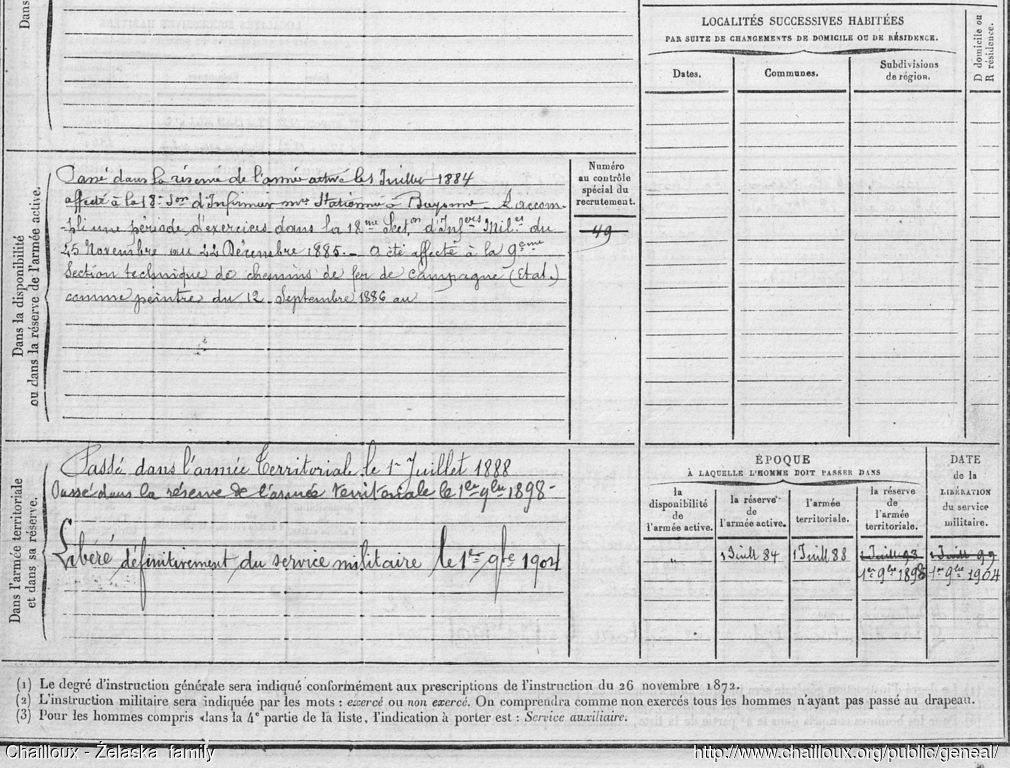 Dans
LOCALITÉS SUCCESSIVES HABITÉES
PAR SUITE DE CHANGEMENTS DE DOMICILE OU DE RÉSIDENCE.
D domicile ou
R résidence.
Dates.
Communes.
Subdivisions
de région.
Dans la disponibilité
ou dans la réserve de l'armée active.
Passé dans la réserve de l'armée active le 1 Juillet 1884
affecté à la 18e Son d'Infirmiers mres Stationné à Bayonne. A accom-
pli une période d'exercices dans la 18me Secton d'Infers Milres du
25 Novembre au 22 Décembre 1885. - A été affecté à la 9ème
Section technique de chemins de fer de campagne (Etat.)
comme peintre du 12 Septembre 1886 au
Numéro
au contrôle
spécial du
recrutement.
49
Dans l'armée territoriale
et dans sa réserve.
Passé dans l'armée Territoriale le 1er Juillet 1888
Passé dans la réserve de l'armée territoriale le 1er 9bre 1898.
Libéré définitivement du service militaire le 1er 9bre 1904
ÉPOQUE
À LAQUELLE L'HOMME DOIT PASSER DANS
la
disponibilité
de
l'armée active.
la réserve
de
l'armée active.
l'armée
territoriale.
la réserve
de
l'armée
territoriale.
DATE
de la
LIBÉRATION
du service
militaire.
1 Juill 84
1 Juill 88
1 Juill 93
1 Juill 99
1er 9bre 1898
1er 9bre 1904
(1) Le degré d'instruction générale sera indiqué conformément aux prescriptions de l'instruction du 26 novembre 1872.
(2) L'instruction militaire sera indiquée par les mots : exercé ou non exercé. On comprendra comme non exercés tous les hommes n'ayant pas passé au drapeau.
(3) Pour les hommes compris dans la 4e partie de la liste, l'indication à porter est : Service auxiliaire.
Chailloux - Żelaska family
http://www.chailloux.org/public/geneal/